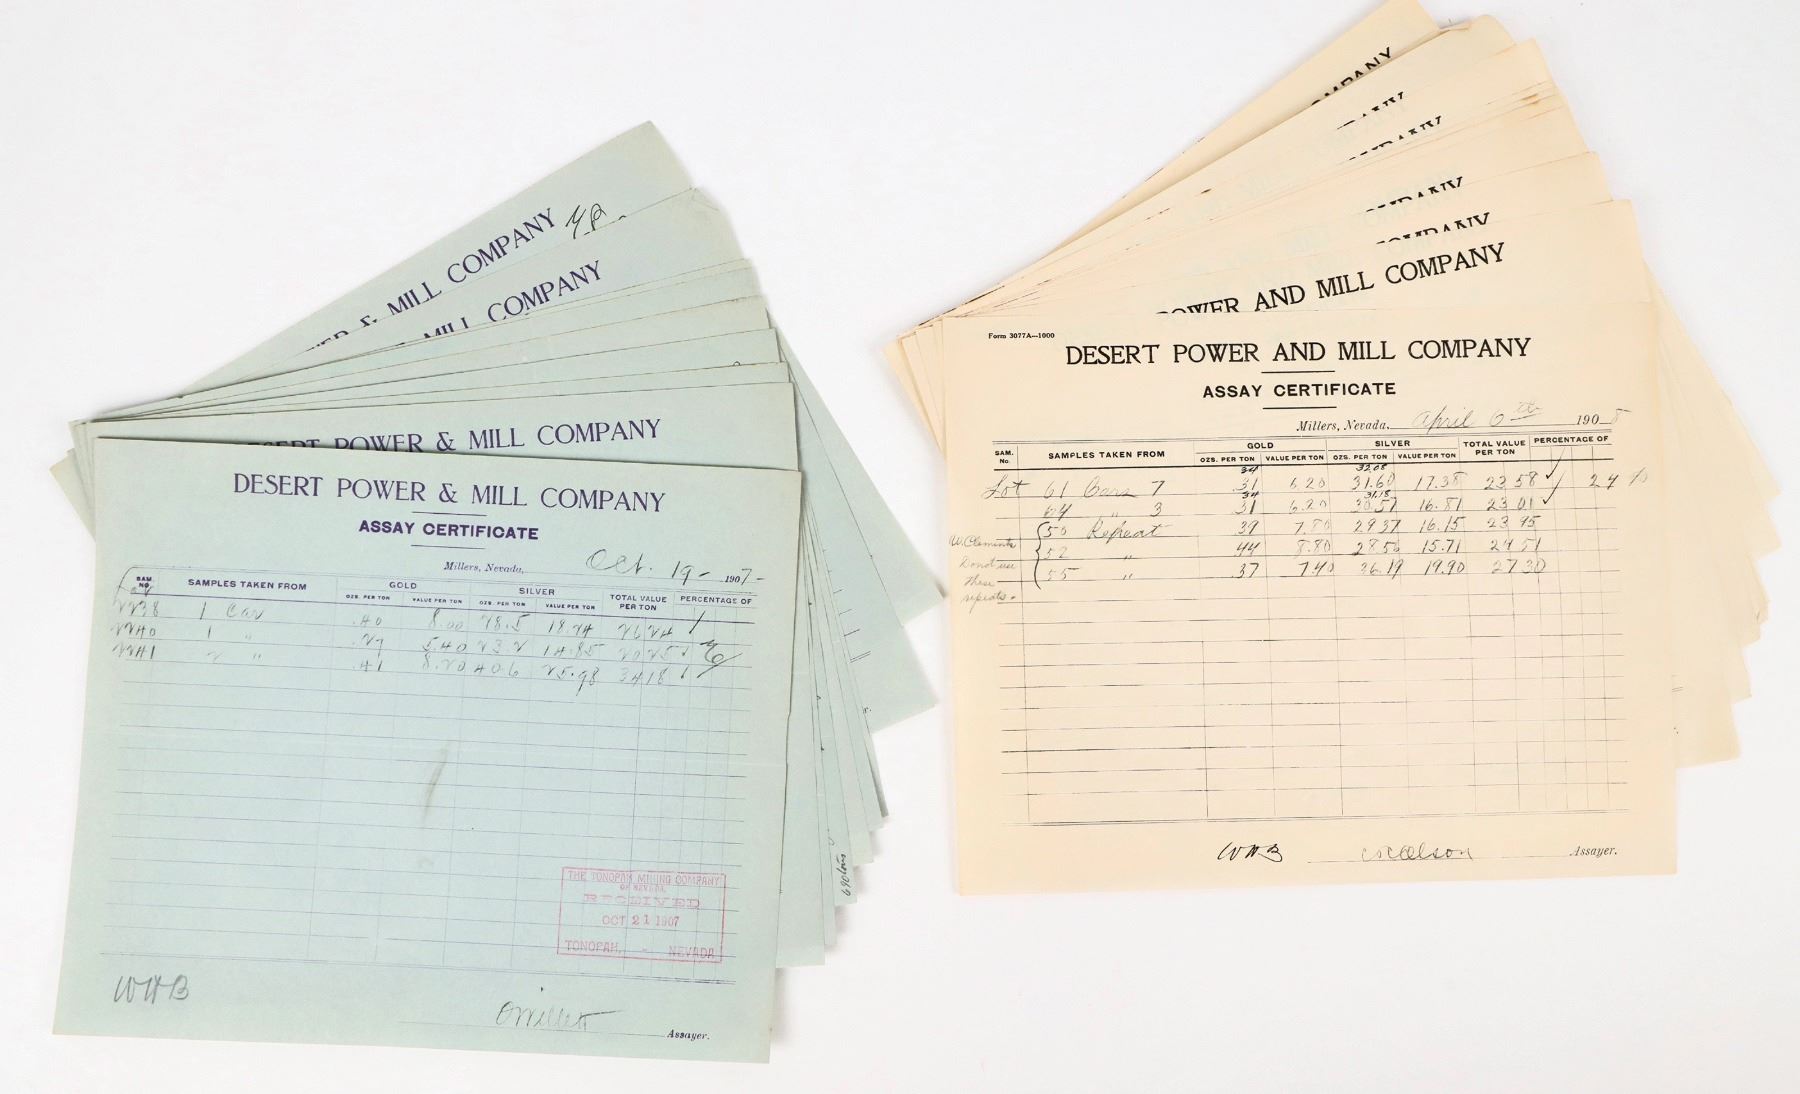 MILL COMPANY
MILL COMPANY
POWER & MILL COMPANY
DESERT POWER & MILL COMPANY
ASSAY CERTIFICATE
Millers, Nevada, Oct. 19- 1907-
SAM. NO. SAMPLES TAKEN FROM GOLD SILVER TOTAL VALUE PER TON PERCENTAGE OF
OZS. PER TON VALUE PER TON OZS. PER TON VALUE PER TON
2238 1 Car .40 8.00 28.5 18.24 26 24
2240 1 " .27 5.40 23 2 14.85 20 25
2241 2 " .41 8.20 40 6 25.98 34 18
THE TONOPAH MINING COMPANY
OF NEVADA
RECEIVED
OCT 21 1907
TONOPAH, - NEVADA
WHB
Assayer.
690 tons
COMPANY
POWER AND MILL COMPANY
Form 3077A-1000
DESERT POWER AND MILL COMPANY
ASSAY CERTIFICATE
Millers, Nevada, April 6th 1908
SAM. No. SAMPLES TAKEN FROM GOLD SILVER TOTAL VALUE PER TON PERCENTAGE OF
OZS. PER TON VALUE PER TON OZS. PER TON VALUE PER TON
.34 32.08
Lot 61 Cars 7 .31 6.20 31.60 17.38 23 58 24 %
34 31.18
64 " 3 .31 6.20 30.57 16.81 23 01
50 Repeat .39 7.80 29 37 16.15 23 95
52 " 44 8.80 28.56 15.71 24 51
55 " .37 7.40 36.19 19.90 27 30
W. Clements
Do not use
these
repeats.
WHB Assayer.